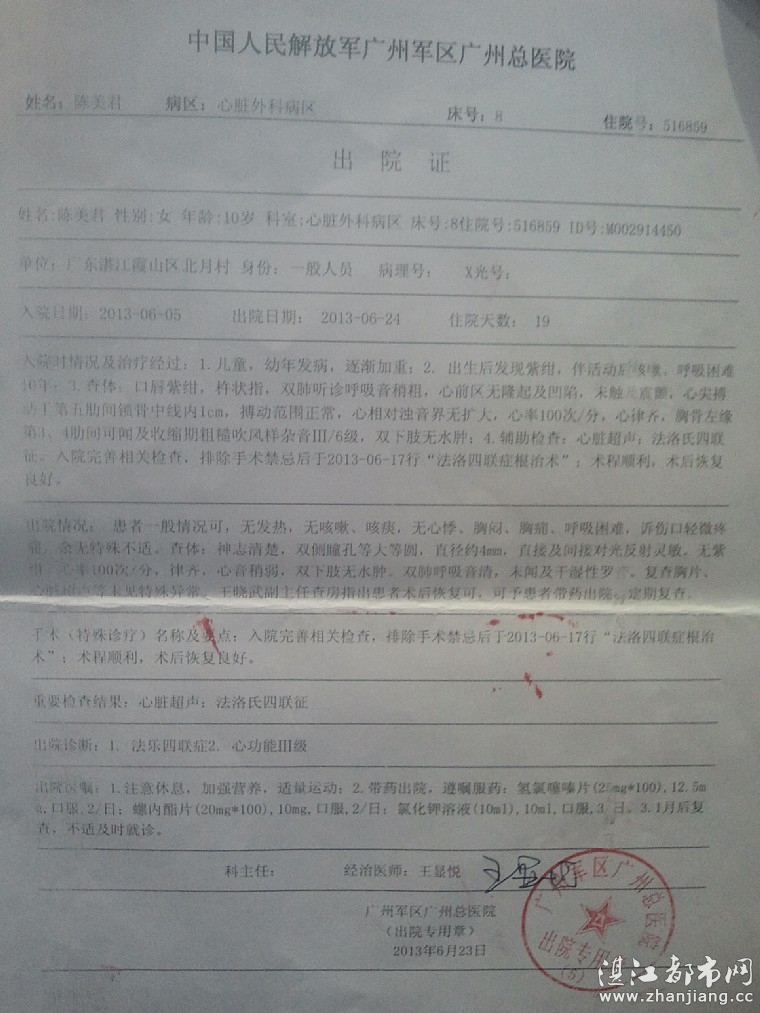 中国人民解放军广州军区广州总医院
姓名：陈美君 病区：心脏外科病区 床号：8 住院号：516859
出 院 证
姓名:陈美君 性别:女 年龄:10岁 科室:心脏外科病区 床号:8住院号:516859 ID号:M002914450
单位：广东湛江霞山区北月村 身份：一般人员 病理号： X光号：
入院日期：2013-06-05 出院日期： 2013-06-24 住院天数： 19
入院时情况及治疗经过：1.儿童，幼年发病，逐渐加重；2. 出生后发现紫绀，伴活动后咳嗽、呼吸困难
10年；3.查体：口唇紫绀，杵状指，双肺听诊呼吸音稍粗，心前区无隆起及凹陷，未触及震颤，心尖搏
动于第五肋间锁骨中线内1cm，搏动范围正常，心相对浊音界无扩大，心率100次/分，心律齐，胸骨左缘
第3、4肋间可闻及收缩期粗糙吹风样杂音III/6级，双下肢无水肿；4.辅助检查：心脏超声：法洛氏四联
征。入院完善相关检查，排除手术禁忌后于2013-06-17行“法洛四联症根治术”；术程顺利，术后恢复
良好。
出院情况： 患者一般情况可，无发热，无咳嗽、咳痰，无心悸、胸闷、胸痛、呼吸困难，诉伤口轻微疼
痛，余无特殊不适。查体：神志清楚，双侧瞳孔等大等圆，直径约4mm，直接及间接对光反射灵敏。无紫
绀，心率100次/分，律齐，心音稍弱，双下肢无水肿。双肺呼吸音清，未闻及干湿性罗音。复查胸片、
心脏超声等未见特殊异常。王晓武副主任查房指出患者术后恢复可，可予患者带药出院，定期复查。
手术（特殊诊疗）名称及要点：入院完善相关检查，排除手术禁忌后于2013-06-17行“法洛四联症根治
术”；术程顺利，术后恢复良好。
重要检查结果：心脏超声：法洛氏四联征
出院诊断：1. 法乐四联症2. 心功能III级
出院医嘱：1.注意休息，加强营养，适量运动；2.带药出院，遵嘱服药：氢氯噻嗪片(25mg*100),12.5m
g,口服,2/日；螺内酯片(20mg*100),10mg,口服,2/日；氯化钾溶液(10ml),10ml,口服,3/日。3.1月后复
查，不适及时就诊。
科主任： 经治医师：王显悦
广州军区广州总医院
（出院专用章）
2013年6月23日
广州军区广州总医院
出院专用
(5)
湛江都市网
www.zhanjiang.cc